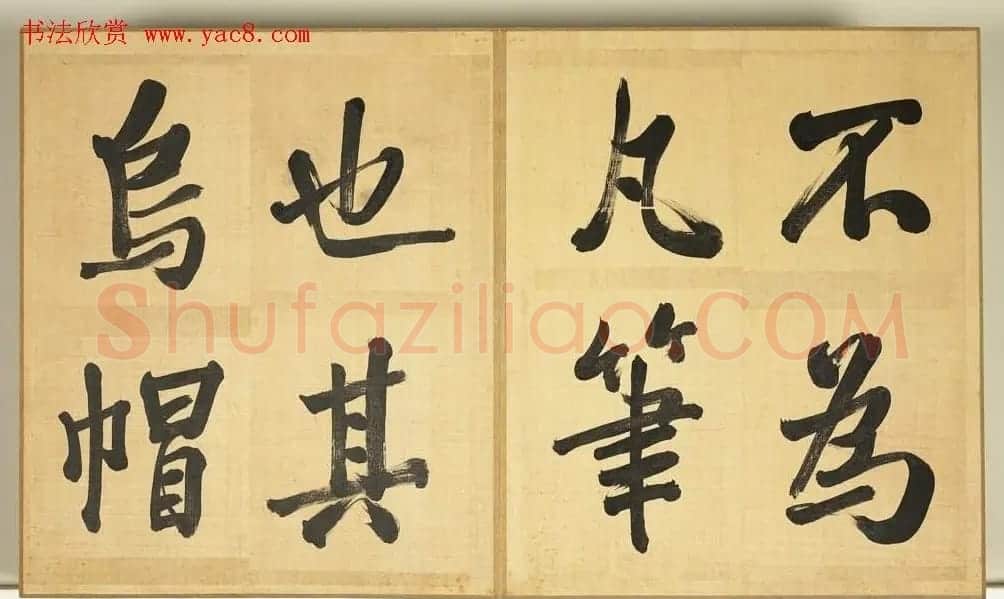 书法欣赏 www.yac8.com
不為
凡筆
也其
烏帽
Shufaziliao.COM